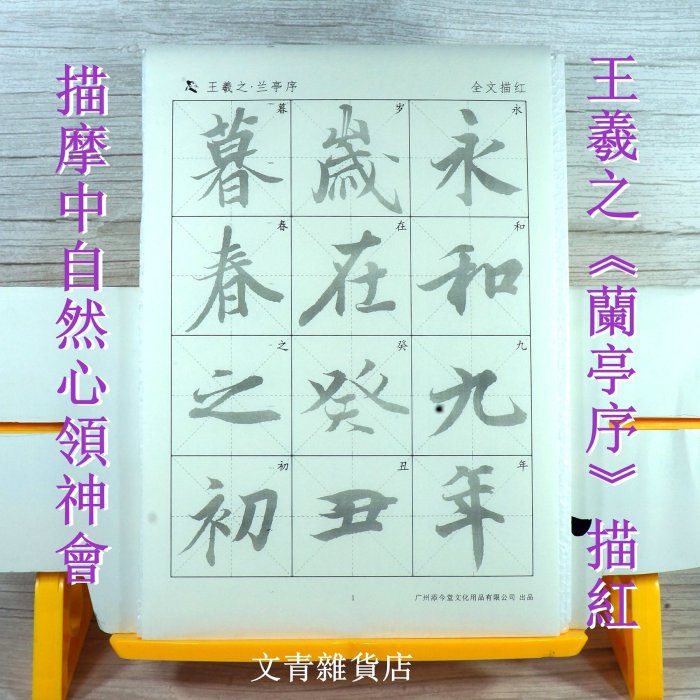 王羲之《蘭亭序》描紅
描摩中自然心領神會
王羲之·兰亭序
全文描红
永和九年
永和九年
岁在癸丑
歲在癸丑
暮春之初
暮春之初
1
广州添今堂文化用品有限公司 出品
文青雜貨店